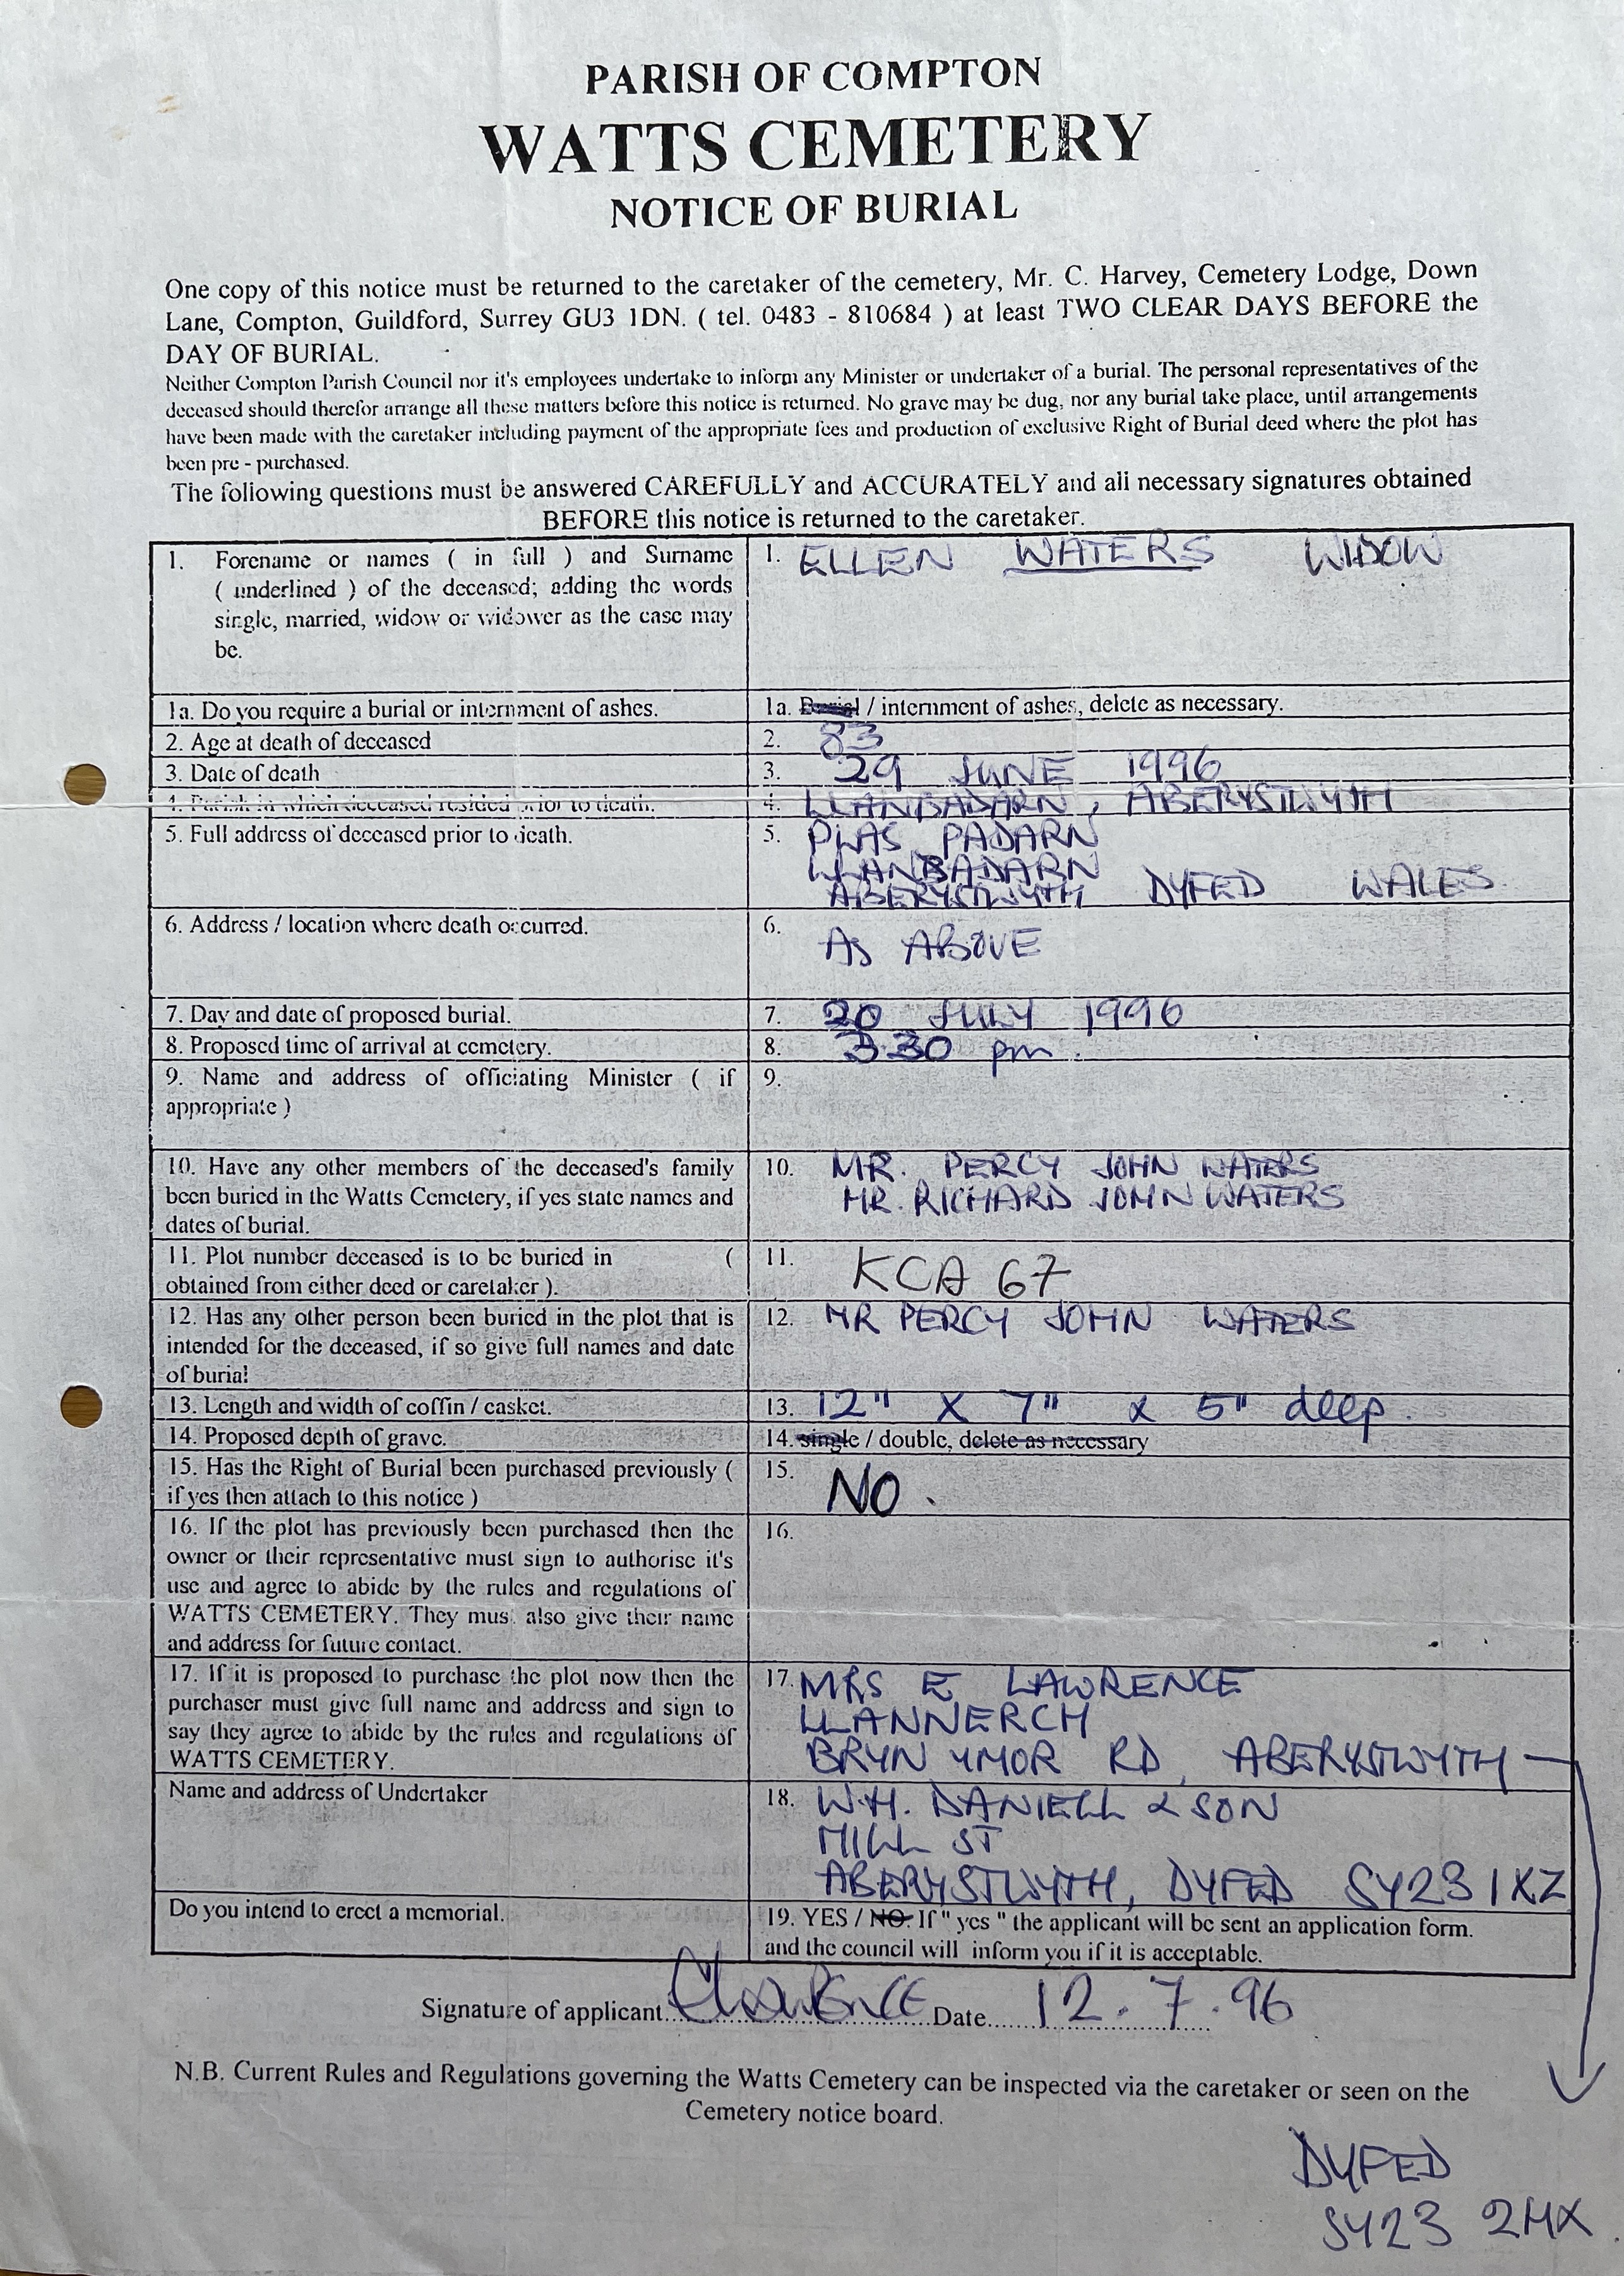 PARISH OF COMPTON
WATTS CEMETERY
NOTICE OF BURIAL
One copy of this notice must be returned to the caretaker of the cemetery, Mr. C. Harvey, Cemetery Lodge, Down
Lane, Compton, Guildford, Surrey GU3 1DN. ( tel. 0483 - 810684 ) at least TWO CLEAR DAYS BEFORE the
DAY OF BURIAL.
Neither Compton Parish Council nor it's employees undertake to inform any Minister or undertaker of a burial. The personal representatives of the
deceased should therefor arrange all these matters before this notice is returned. No grave may be dug, nor any burial take place, until arrangements
have been made with the caretaker including payment of the appropriate fees and production of exclusive Right of Burial deed where the plot has
been pre - purchased.
The following questions must be answered CAREFULLY and ACCURATELY and all necessary signatures obtained
BEFORE this notice is returned to the caretaker.
1. Forename or names ( in full ) and Surname
( underlined ) of the deceased; adding the words
single, married, widow or widower as the case may
be.
1. ELLEN WATERS WIDOW
1a. Do you require a burial or internment of ashes.
1a. Burial / internment of ashes, delete as necessary.
2. Age at death of deceased
2. 83
3. Date of death
3. 29 JUNE 1996
4. Parish in which deceased resided prior to death.
4. LLANBADARN, ABERYSTWYTH
5. Full address of deceased prior to death.
5. PLAS PADARN
LLANBADARN
ABERYSTWYTH DYFED WALES
6. Address / location where death occurred.
6. AS ABOVE
7. Day and date of proposed burial.
7. 20 JULY 1996
8. Proposed time of arrival at cemetery.
8. 3.30 pm.
9. Name and address of officiating Minister ( if
appropriate )
9.
10. Have any other members of the deceased's family
been buried in the Watts Cemetery, if yes state names and
dates of burial.
10. MR. PERCY JOHN WATERS
MR. RICHARD JOHN WATERS
11. Plot number deceased is to be buried in (
obtained from either deed or caretaker ).
11. KCA 67
12. Has any other person been buried in the plot that is
intended for the deceased, if so give full names and date
of burial
12. MR PERCY JOHN WATERS
13. Length and width of coffin / casket.
13. 12" X 7" x 5" deep.
14. Proposed depth of grave.
14. single / double, delete as necessary
15. Has the Right of Burial been purchased previously (
if yes then attach to this notice )
15. NO.
16. If the plot has previously been purchased then the
owner or their representative must sign to authorise it's
use and agree to abide by the rules and regulations of
WATTS CEMETERY. They must also give their name
and address for future contact.
16.
17. If it is proposed to purchase the plot now then the
purchaser must give full name and address and sign to
say they agree to abide by the rules and regulations of
WATTS CEMETERY.
17. MRS E LAWRENCE
LLANNERCH
BRYN YMOR RD, ABERYSTWYTH
Name and address of Undertaker
18. W.H. DANIELL & SON
MILL ST
ABERYSTWYTH, DYFED SY23 1XZ
Do you intend to erect a memorial.
19. YES / NO. If " yes " the applicant will be sent an application form.
and the council will inform you if it is acceptable.
Signature of applicant Date 12.7.96
N.B. Current Rules and Regulations governing the Watts Cemetery can be inspected via the caretaker or seen on the
Cemetery notice board.
DYFED
SY23 2HX